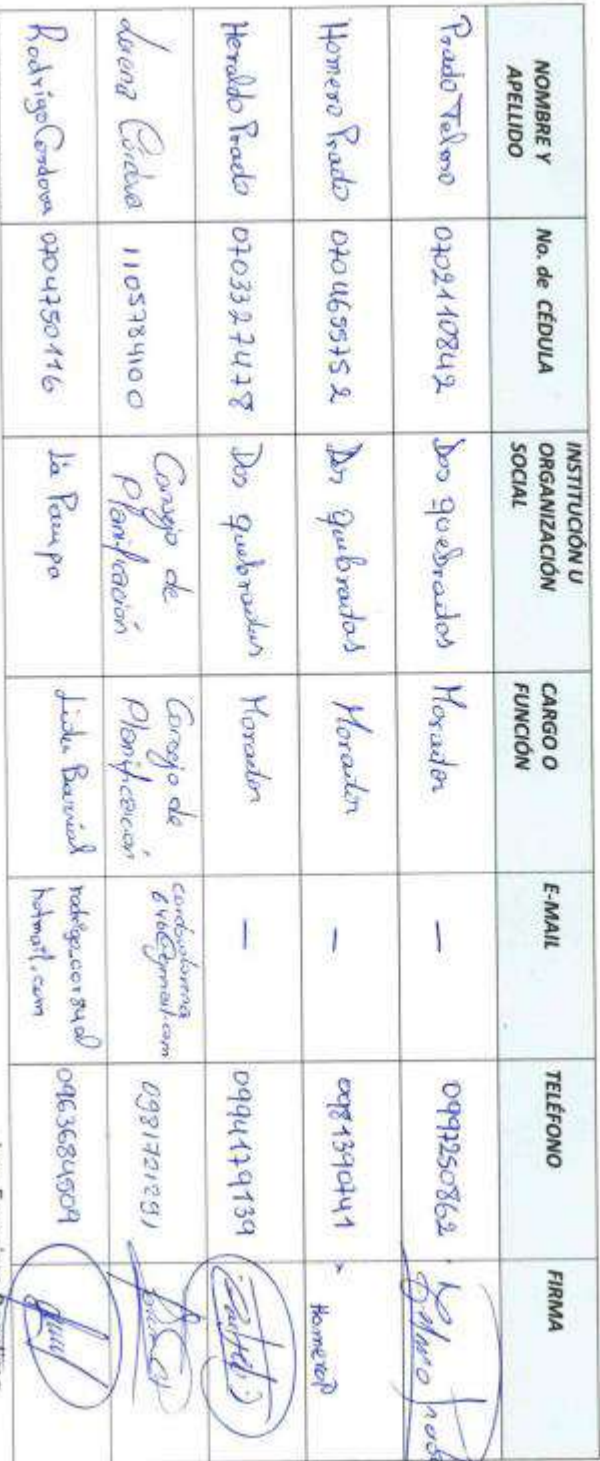 NOMBRE Y APELLIDO No. de CÉDULA INSTITUCIÓN U ORGANIZACIÓN SOCIAL CARGO O FUNCIÓN E-MAIL TELÉFONO FIRMA
Prado Telmo 0702110842 Dos quebradas Morador — 0997250862
Homero Prado 0704655752 Dos quebradas Morador — 0981390741 HomeroP
Heraldo Prado 0703327478 Dos quebradas Morador — 0994179139
Lorena Córdova 1105784100 Consejo de Planificación Consejo de Planificación 0981721291
Rodrigo Cordova 0704750116 La Pampa Lider Barrial hotmail.com 0963684509